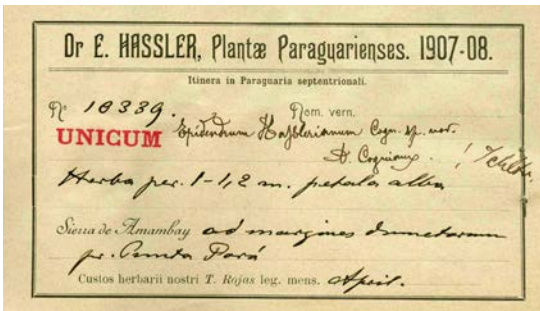 Dr E. HASSLER, Plantæ Paraguarienses. 1907-08.
Itinera in Paraguaria septentrionali.
No 10339. Nom. vern.
UNICUM Epidendrum Hasslerianum Cogn. sp. nov.
Cogniaux. ! Schltr.
Herba per. 1-1,2 m. petala alba
Sierra de Amambay ad margines dumetorum
pr. Punta Porá
Custos herbarii nostri T. Rojas leg. mens. April.